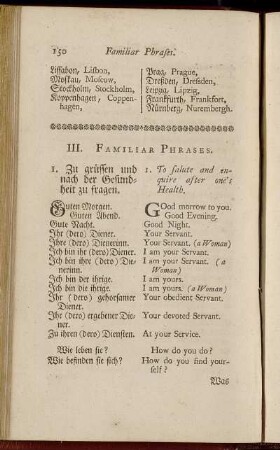 150 Familiar Phrases.
Lissabon, Lisbon,
Moskau, Moscow,
Stockholm, Stockholm,
Koppenhagen, Coppen-
hagen,
Prag, Prague,
Dreßden, Dresden,
Leipzig, Lipzig,
Franckfurth, Frankfort,
Nürnberg, Nurembergh.
III. FAMILIAR PHRASES.
1. Zu grüssen und
nach der Gesund-
heit zu fragen.
Guten Morgen.
Guten Abend.
Gute Nacht.
Ihr (dero) Diener.
Ihre (dero) Dienerinn.
Ich bin ihr (dero) Diener.
Ich bin ihre (dero) Die-
nerinn.
Ich bin der ihrige.
Ich bin die ihrige.
Ihr (dero) gehorsamer
Diener.
Ihr (dero) ergebener Die-
ner.
Zu ihren (dero) Diensten.
Wie leben sie?
Wie befinden sie sich?
1. To salute and en-
quire after one's
Health.
Good morrow to you.
Good Evening.
Good Night.
Your Servant.
Your Servant. (a Woman)
I am your Servant.
I am your Servant. (a
Woman)
I am yours.
I am yours. (a Woman)
Your obedient Servant.
Your devoted Servant.
At your Service.
How do you do?
How do you find your-
self?
Was